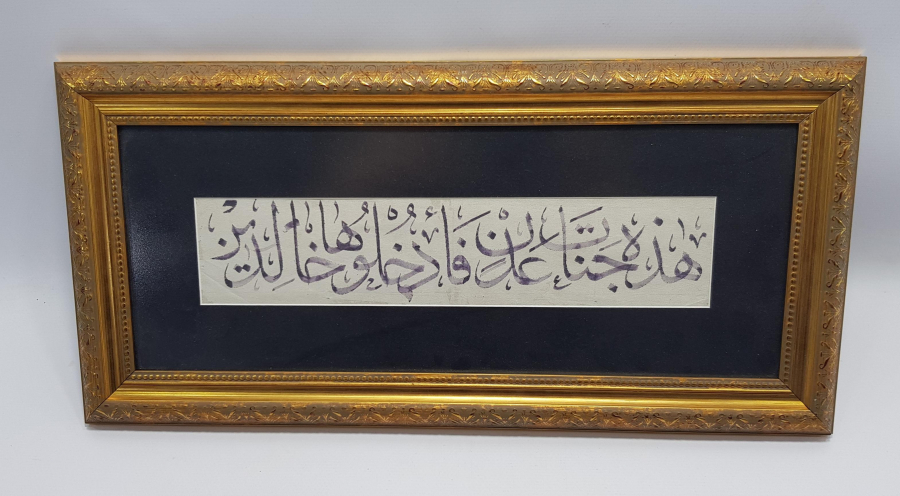 هذه جنات عدن فادخلوها خالدين